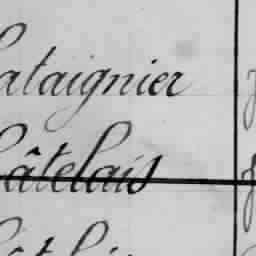 ataignier
âtelais